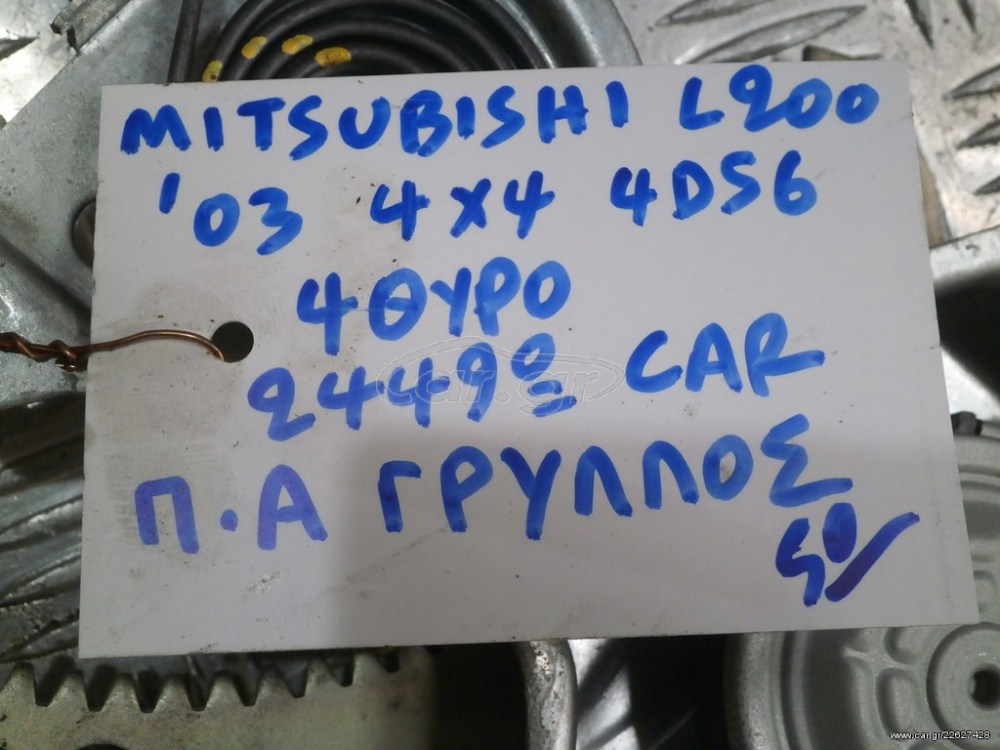 MITSUBISHI L200
'03 4X4 4D56
4ΘΥΡΟ
24498 CAR
Π.Α ΓΡΥΛΛΟΣ
50/
car.gr
www.car.gr/22627428